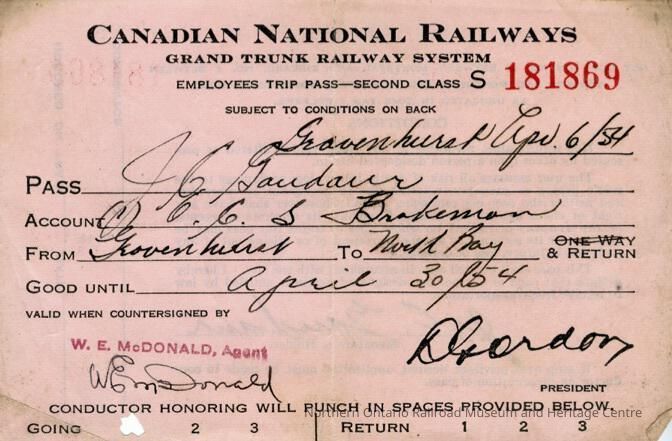 CANADIAN NATIONAL RAILWAYS
GRAND TRUNK RAILWAY SYSTEM
EMPLOYEES TRIP PASS—SECOND CLASS S 181869
SUBJECT TO CONDITIONS ON BACK
Gravenhurst Apr. 6/54
PASS J C Gaudaur
ACCOUNT Brakeman
FROM Gravenhurst TO North Bay ONE WAY & RETURN
GOOD UNTIL April 30/54
VALID WHEN COUNTERSIGNED BY
W. E. McDONALD, Agent
W E McDonald
D Gordon
PRESIDENT
CONDUCTOR HONORING WILL PUNCH IN SPACES PROVIDED BELOW.
Northern Ontario Railroad Museum and Heritage Centre
GOING 2 3 RETURN 1 2 3